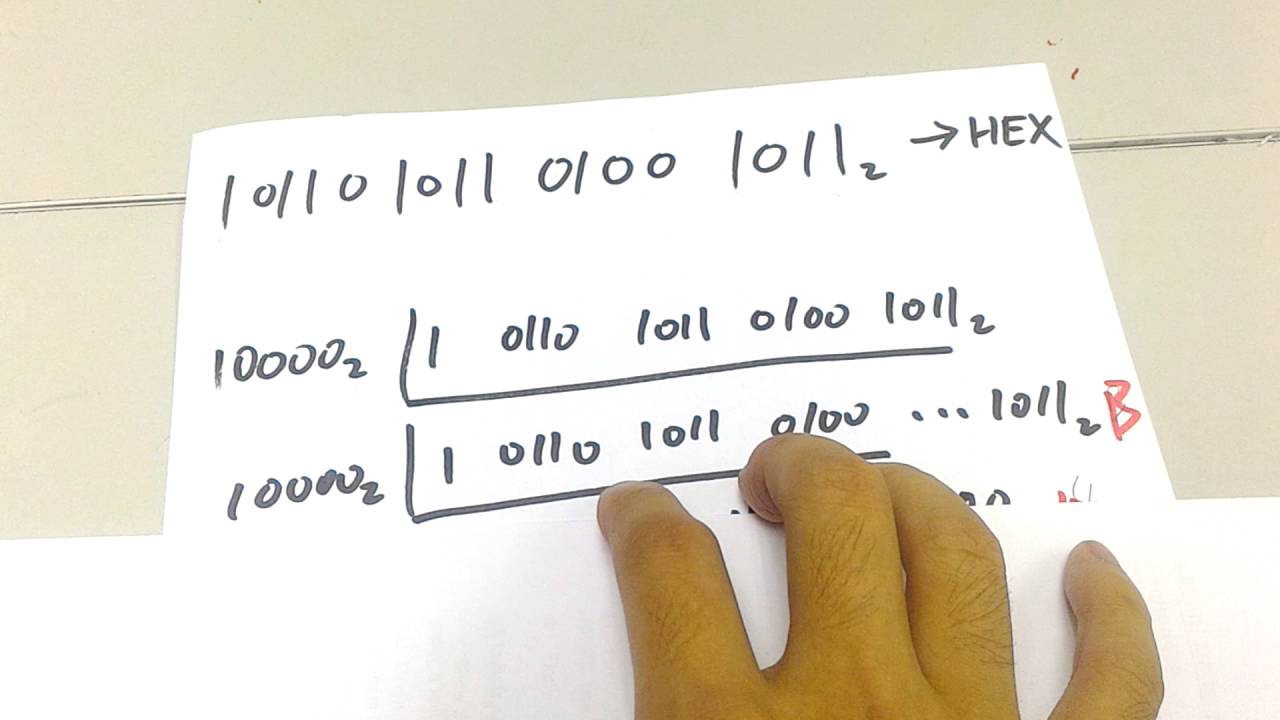 10110 1011 0100 1011₂ → HEX
10000₂ 1 0110 1011 0100 1011₂
10000₂ 1 0110 1011 0100 ... 1011₂ B